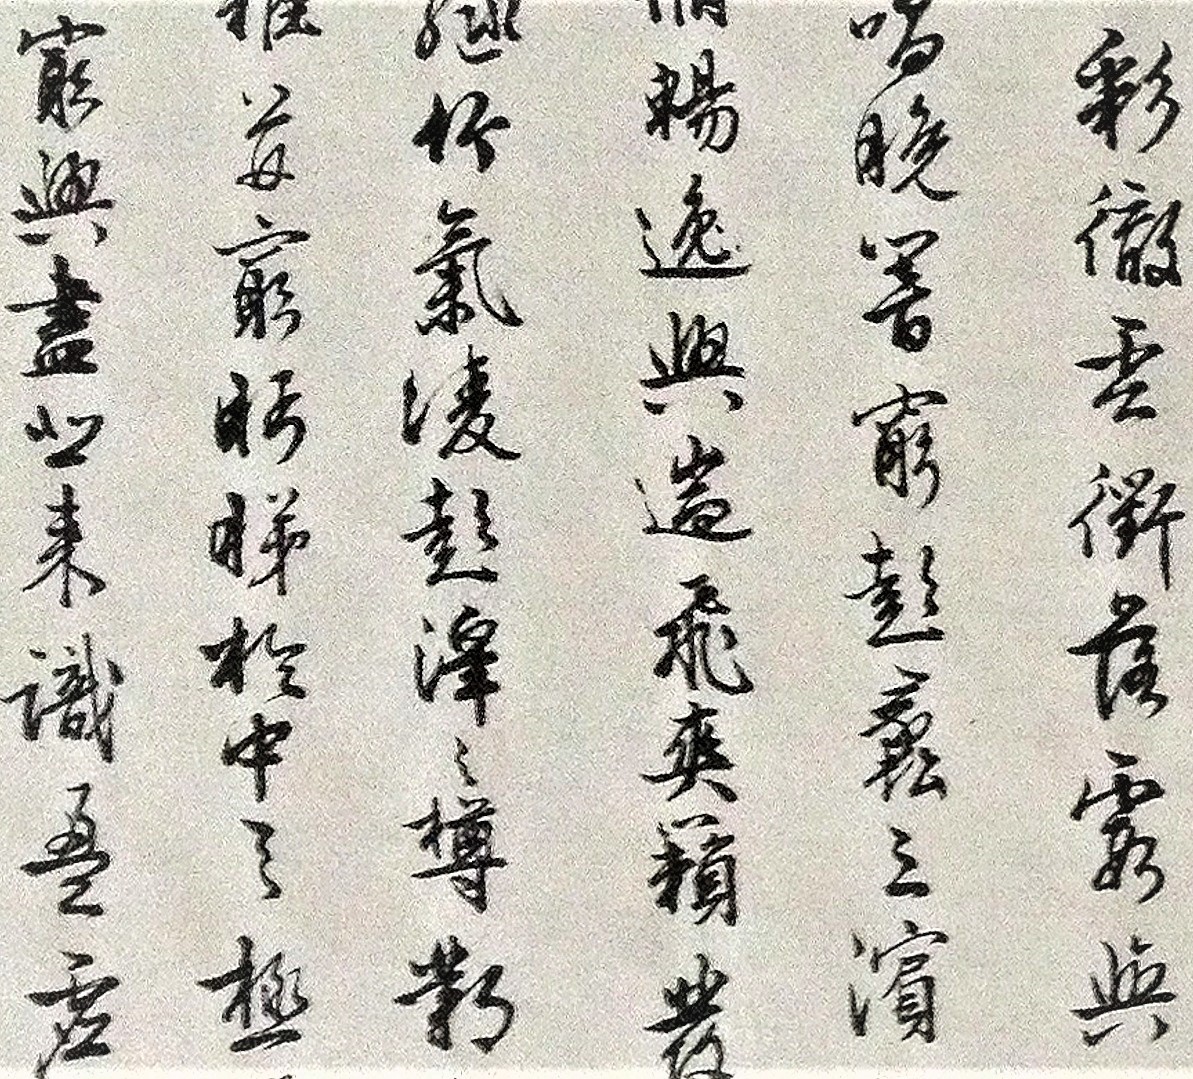 彩徹雲衢落霞與
唱晚響窮彭蠡之濱
暢逸興遄飛爽籟發
竹氣凌彭澤之樽鄴
於窮睇眄於中天極
窮興盡悲來識盈虛